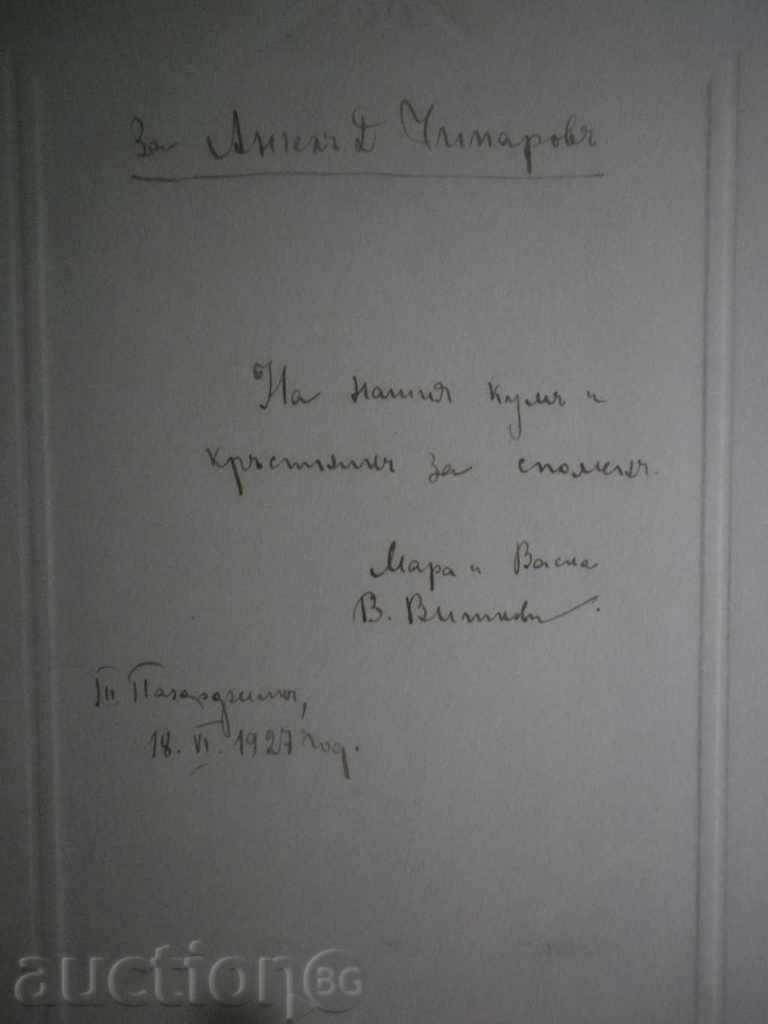 За Ангелъ Д Чипаровъ
На нашия кумъ и
кръстникъ за споменъ.
Мара и Васил
В. Виткови.
Т. Пазарджикъ,
18. VI. 1927 год.
auction BG